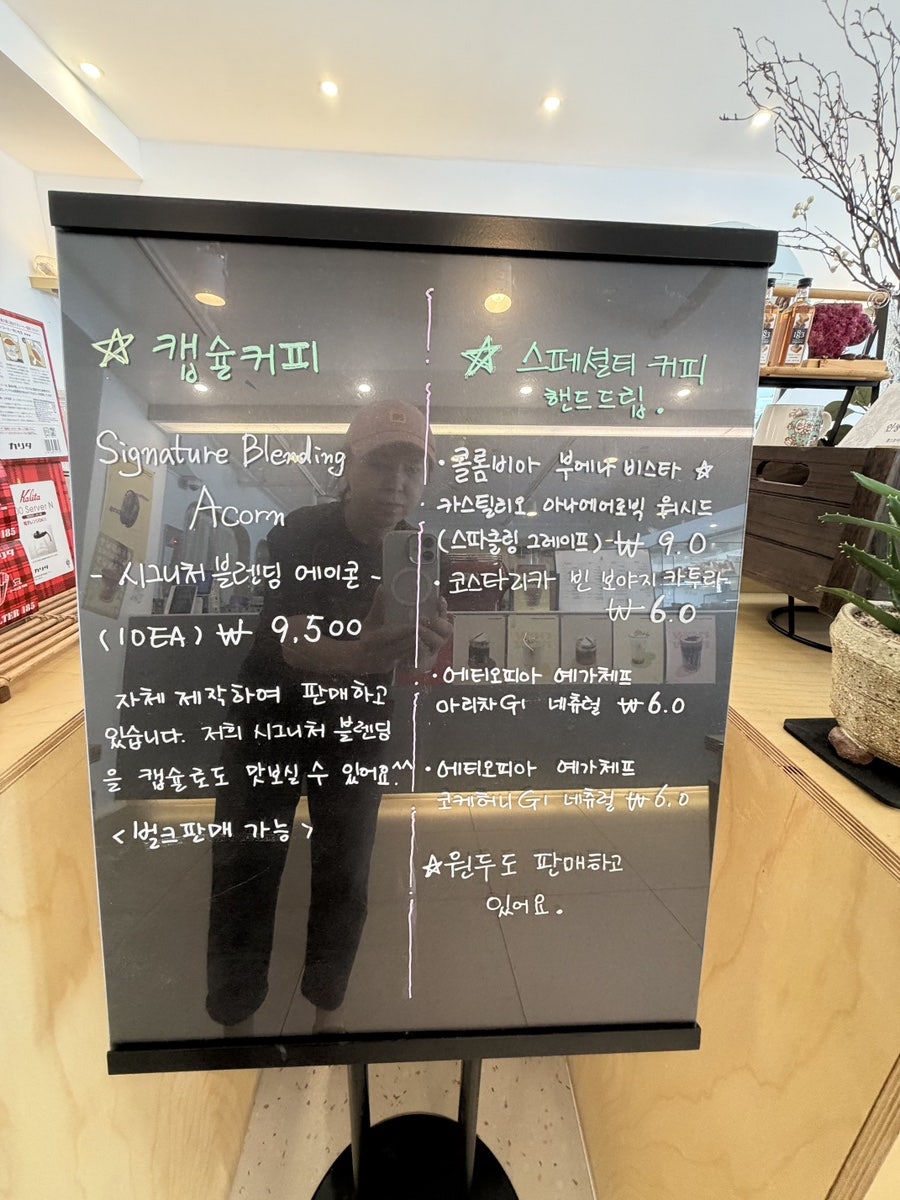 ☆ 캡슐커피
Signature Blending
Acorn
- 시그니처 블렌딩 에이콘 -
(10EA) ₩ 9,500
자체 제작하여 판매하고
있습니다. 저희 시그니처 블렌딩
을 캡슐로도 맛보실 수 있어요^^
<벌크판매 가능>
☆ 스페셜티 커피
핸드드립.
· 콜롬비아 부에나 비스타 ☆
카스틸리오 아나에어로빅 워시드
(스파클링 그레이프) ₩ 9.0
· 코스타리카 빈 보야지 카투라
₩ 6.0
· 에티오피아 예가체프
아리차 G1 네츄럴 ₩6.0
· 에티오피아 예가체프
코케허니 G1 네츄럴 ₩6.0
☆원두도 판매하고
있어요.
カリタ
Kalita
Server N
185